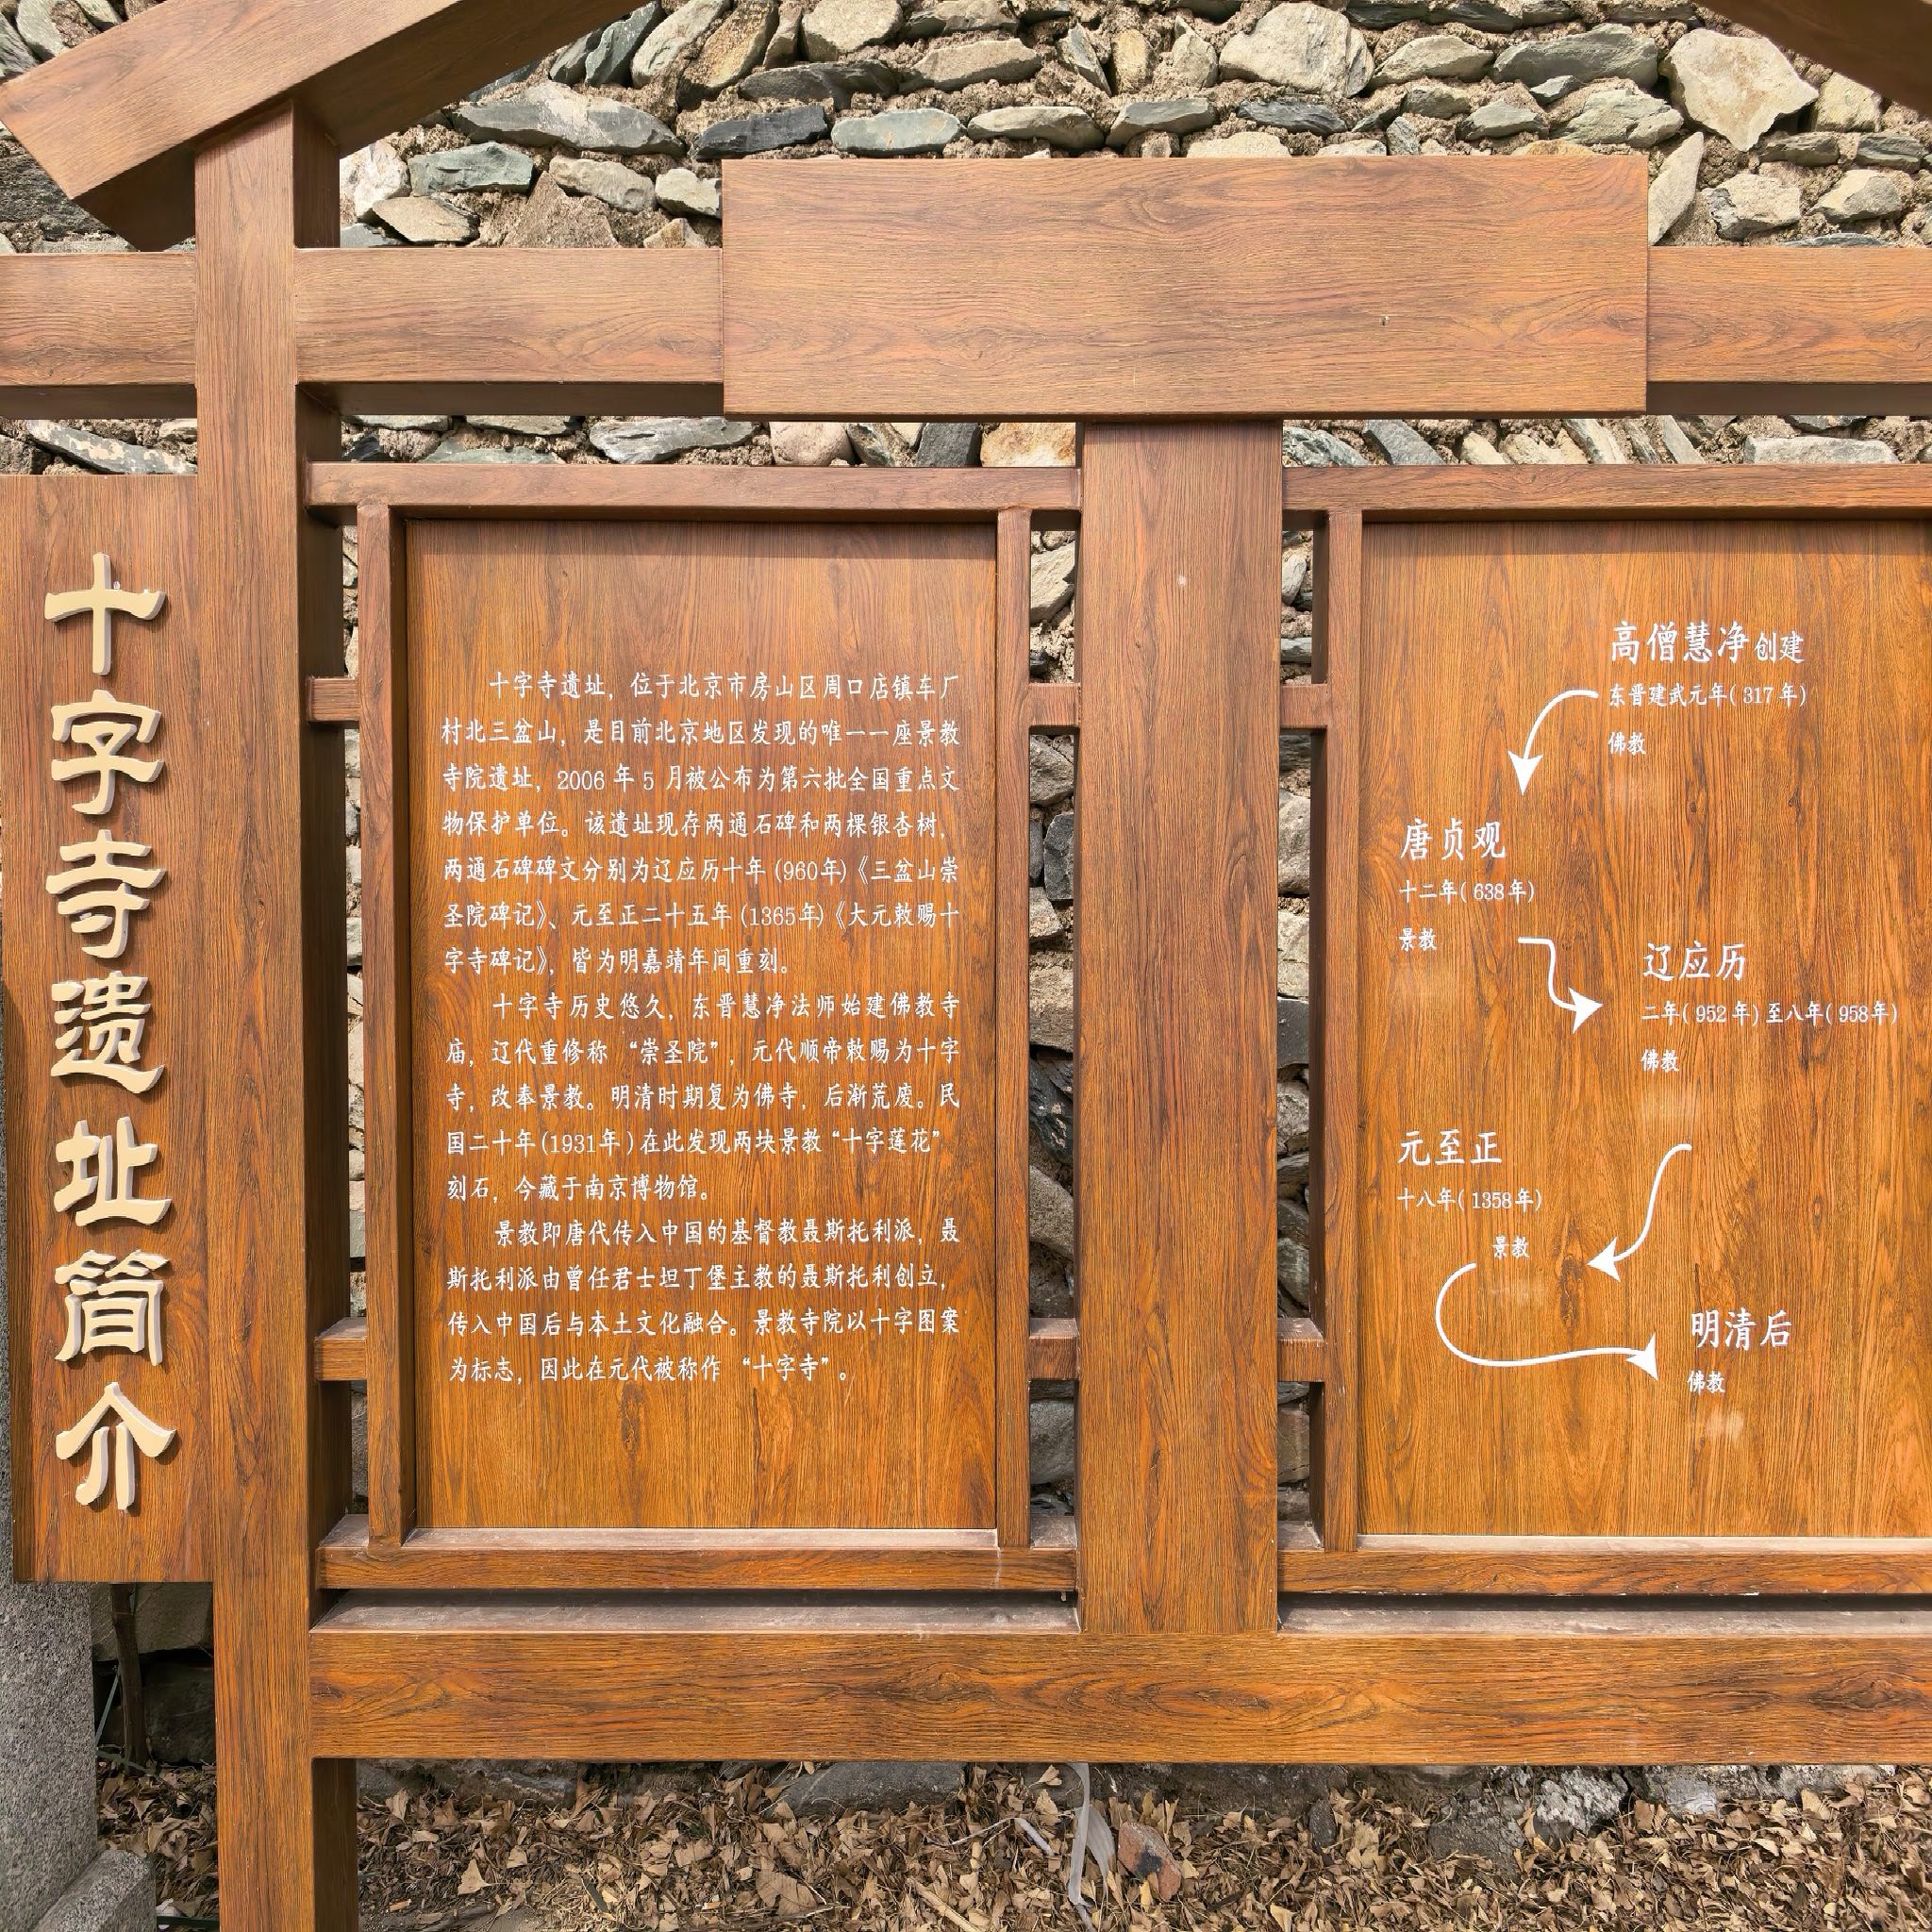 十字寺遗址简介
十字寺遗址，位于北京市房山区周口店镇车厂
村北三盆山，是目前北京地区发现的唯一一座景教
寺院遗址，2006 年 5 月被公布为第六批全国重点文
物保护单位。该遗址现存两通石碑和两棵银杏树，
两通石碑碑文分别为辽应历十年 (960年)《三盆山崇
圣院碑记》、元至正二十五年 (1365年)《大元敕赐十
字寺碑记》，皆为明嘉靖年间重刻。
十字寺历史悠久，东晋慧净法师始建佛教寺
庙，辽代重修称 “崇圣院”，元代顺帝敕赐为十字
寺，改奉景教。明清时期复为佛寺，后渐荒废。民
国二十年 (1931年 ) 在此发现两块景教 “十字莲花”
刻石，今藏于南京博物馆。
景教即唐代传入中国的基督教聂斯托利派，聂
斯托利派由曾任君士坦丁堡主教的聂斯托利创立，
传入中国后与本土文化融合。景教寺院以十字图案
为标志，因此在元代被称作 “十字寺”。
高僧慧净创建
东晋建武元年( 317 年)
佛教
唐贞观
十二年( 638 年)
景教
辽应历
二年( 952 年) 至八年( 958年)
佛教
元至正
十八年( 1358 年)
景教
明清后
佛教